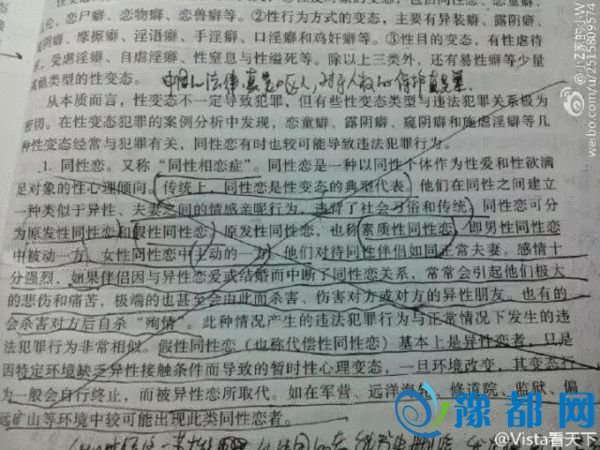 恋、恋尸癖、恋物癖、恋兽癖等。②性行为方式的变态，主要有异装癖、露阴癖、
窥阴癖、摩擦癖、淫语癖、手淫癖、口淫癖和鸡奸癖等。③性目的变态，有性虐待
、受虐淫癖、自虐淫癖、性窒息与性缢死等。除以上三类外，还有易性癖等少量
其他类型的性变态。
从本质而言，性变态不一定导致犯罪，但有些性变态类型与违法犯罪关系极为
密切。在性变态犯罪的案例分析中发现，恋童癖、露阴癖、窥阴癖和施虐淫癖等几
种性变态经常与犯罪有关，同性恋有时也较可能导致违法犯罪行为。
1. 同性恋。又称“同性相恋症”。同性恋是一种以同性个体作为性爱和性欲满
足对象的性心理倾向。传统上，同性恋是性变态的典型代表。他们在同性之间建立
一种类似于异性、夫妻之间的情感亲昵行为，违背了社会习俗和传统。同性恋可分
为原发性同性恋和假性同性恋。原发性同性恋，也称素质性同性恋，即男性同性恋
中被动一方、女性同性恋中主动的一方。他们对待同性伴侣如同正常夫妻，感情十
分强烈，如果伴侣因与异性恋爱或结婚而中断了同性恋关系，常常会引起他们极大
的悲伤和痛苦，极端的也甚至会由此而杀害、伤害对方或对方的异性朋友。也有的
会杀害对方后自杀“殉情”。此种情况产生的违法犯罪行为与正常情况下发生的违
法犯罪行为非常相似。假性同性恋（也称代偿性同性恋）基本上是异性恋者，只是
因特定环境缺乏异性接触条件而导致的暂时性心理变态，一旦环境改变，其变态行
为一般会自行终止，而被异性恋所取代。如在军营、远洋海轮、修道院、监狱、偏
远矿山等环境中较可能出现此类同性恋者。
weibo.com/u/2515809574
豫都网
@Vista看天下